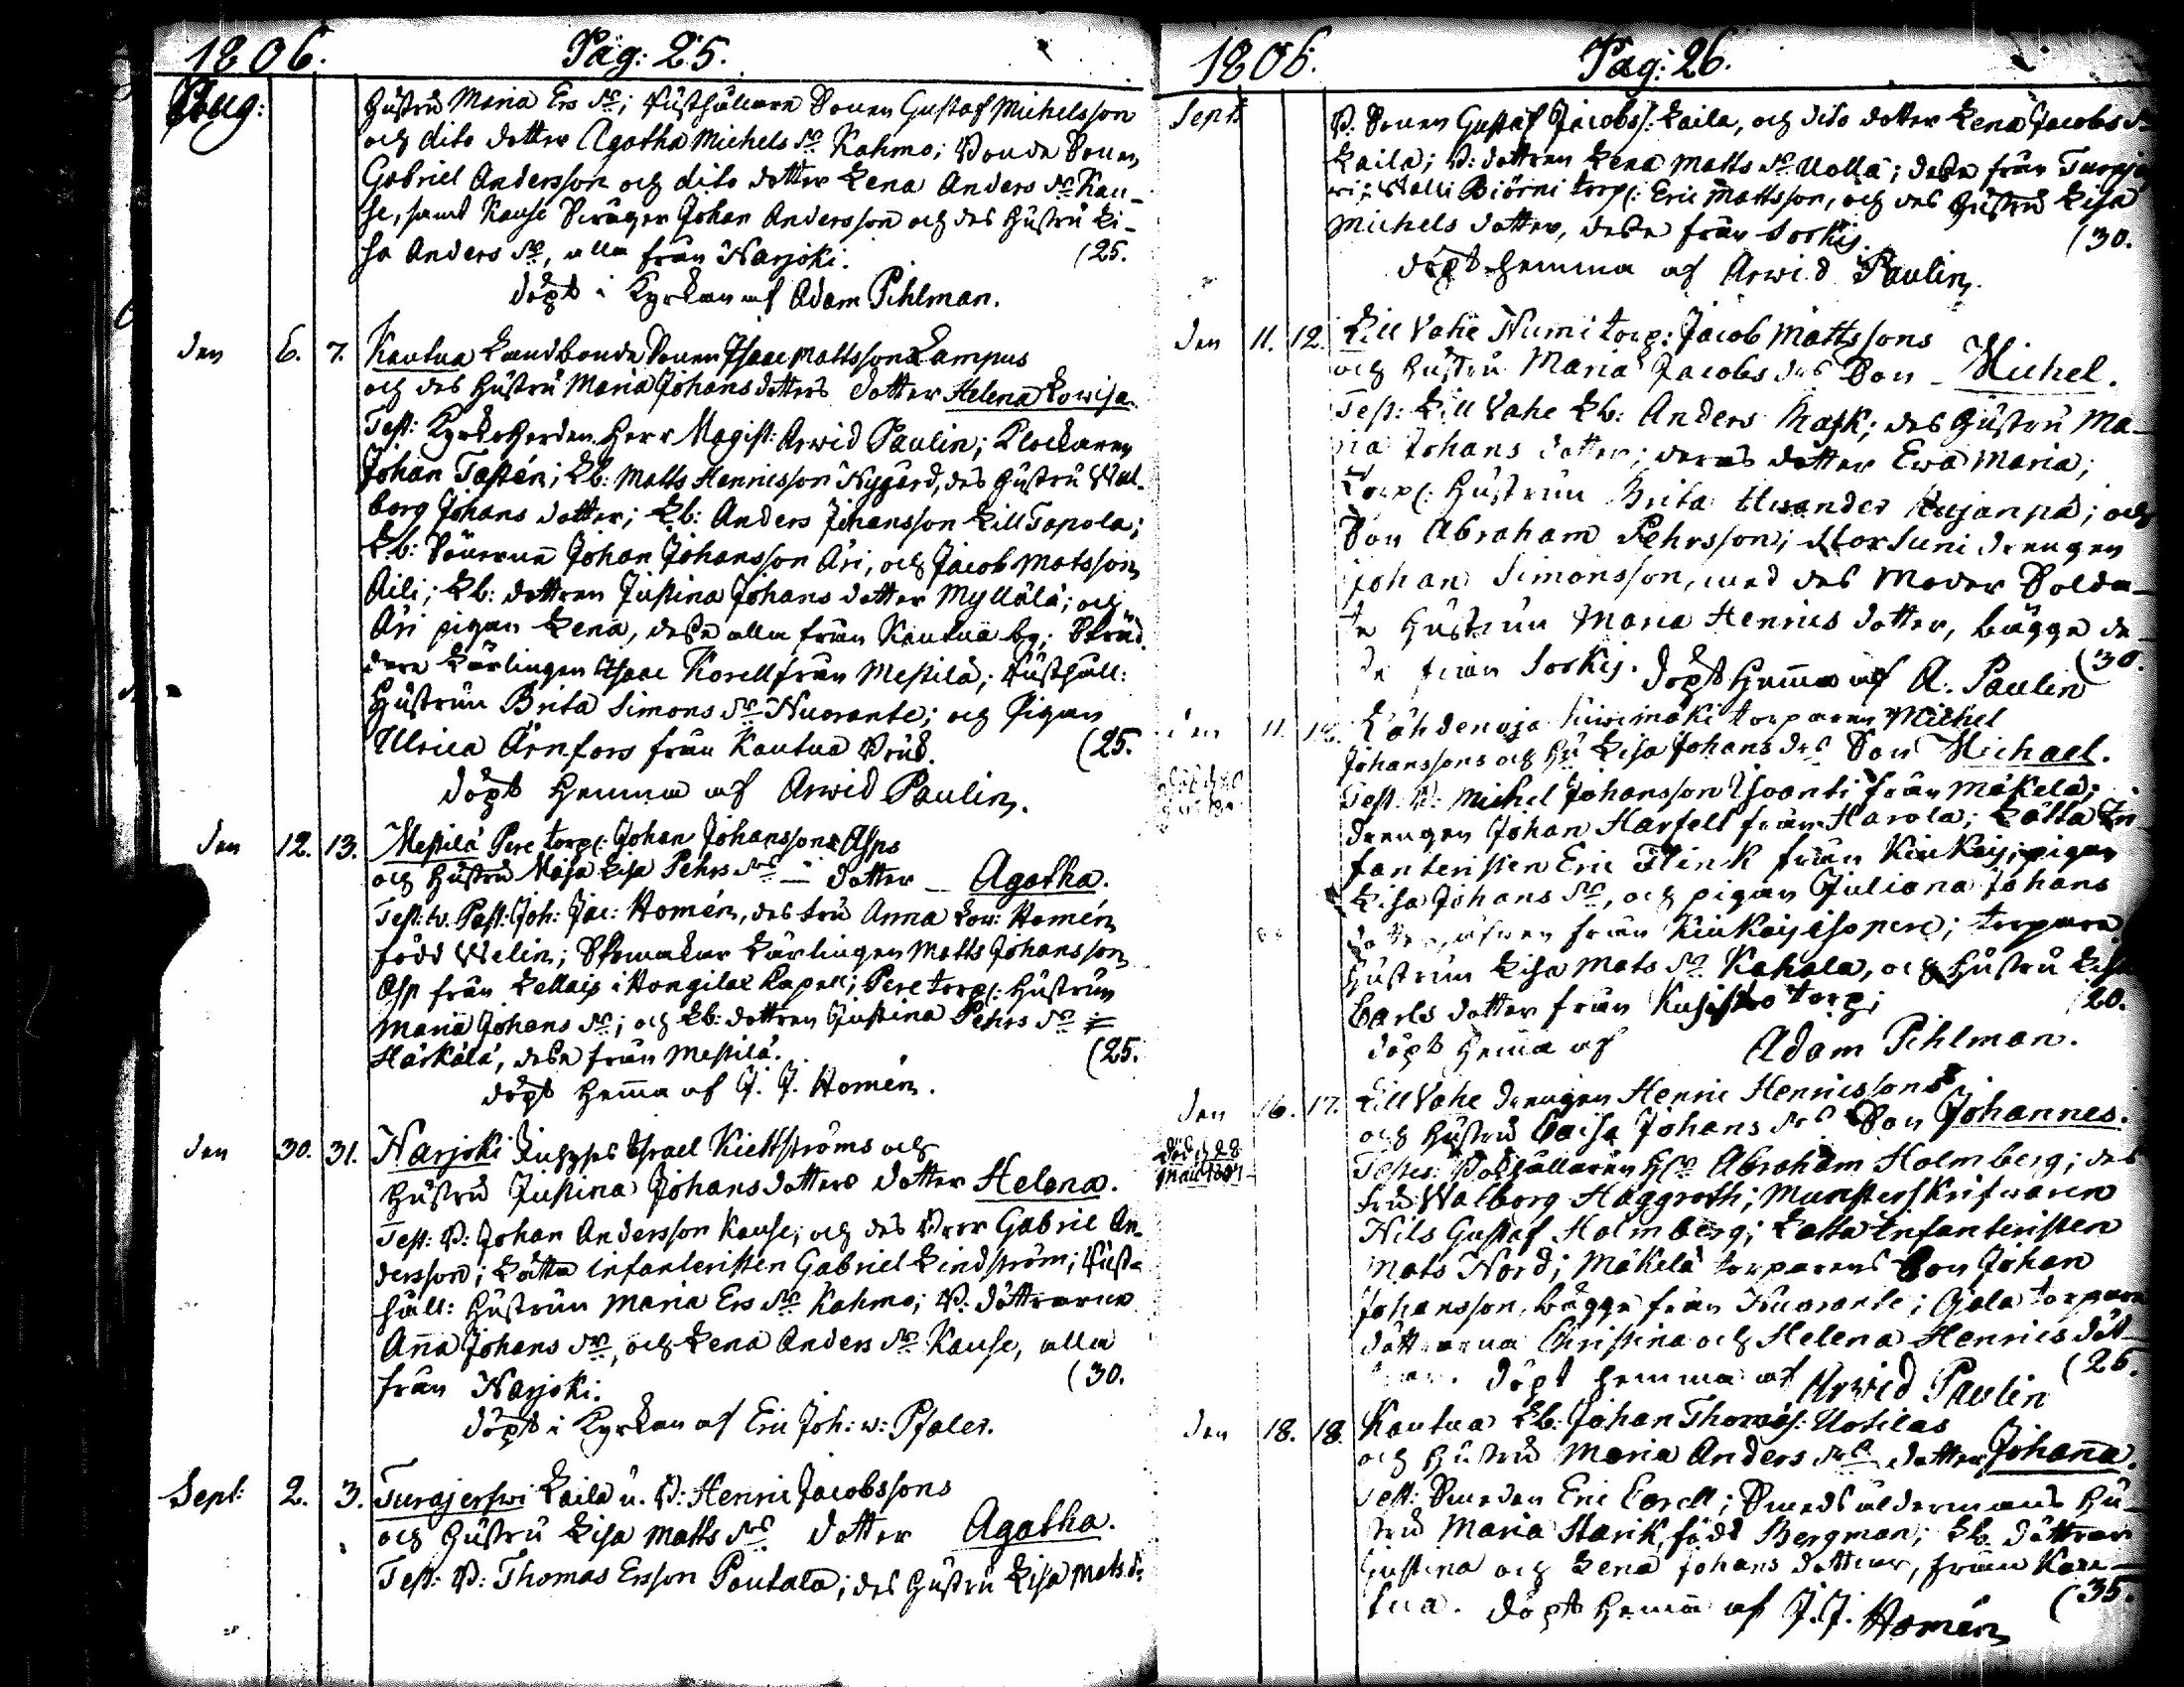 1806. Pag: 25.
Aug:
Hustru Maria Ers dr; Rusthållare Sonen Gustaf Michelsson
och dito dotter Agatha Michels dr Kahmo; Bonde Sonen
Gabriel Andersson och dito dotter Lena Anders dr Kau-
se, samt Kause Swåger Johan Andersson och des Hustru Li-
sa Anders dr, alla från Narjoki. (25.
döpt i Kyrkan af Adam Pihlman.
den 6. 7. Kautua Landbonde Sonen Isaac Mattssons Lampus
och des Hustru Maria Johans dotters dotter Helena Lowisa.
Test: Kyrkoherden Herr Magist: Arwid Paulin; Klockaren
Johan Tastén; Lb: Matts Henricsson Nygård, des Hustru Wal-
borg Johans dotter; Lb: Anders Johansson Lill Tapola;
Lb: Sönerne Johan Johansson Äri, och Jacob Matsson
Aili; Lb: dottren Justina Johans dotter Myllälä; och
Äri pigan Lena, desse alla från Kautua by; Skräd-
dare Lärlingen Isaac Korell från Mestilä; Rusthåll:
Hustrun Brita Simons dr Nuorante; och Pigan
Ulrica Örnfors från Kautua Bruk. (25.
döpt hemma af Arwid Paulin.
den 12. 13. Mestilä Pere torp: Johan Johanssons Asps
och Hustru Maja Lisa Pehrs drs dotter Agatha.
Test: w. Past: Joh: Jac: Homén, des fru Anna Low: Homén
född Welin; Skomakar Lärlingen Matts Johansson
Asp från Lellais i Hongilax Kapell; Pere torp: Hustrun
Maria Johans dr; och Lb: dottren Justina Pehrs dr
Härkälä, desse från Mestilä. (25.
döpt hemma af J. J. Homén.
den 30. 31. Narjoki Israel Kiellströms och
Hustru Justina Johans dotters dotter Helena.
Test: B: Johan Andersson Kause, och des Bror Gabriel An-
dersson; Lätta infanteristen Gabriel Lindström; Rust-
håll: Hustrun Maria Ers dr Kahmo; B: döttrarne
Anna Johans dr, och Lena Anders dr Kause, alla
från Narjoki. (30.
döpt i Kyrkan af Eric Joh: w: Pfaler.
Sept: 2. 3. Turajerfwi Laila u. B: Henric Jacobssons
och Hustru Lisa Matts drs dotter Agatha.
Test: B: Thomas Ersson Pautala; des Hustru Lisa Mats dr
1806. Pag: 26.
Sept:
B: Sonen Gustaf Jacobs: Laila, och dito dotter Lena Jacobs dr
Laila; B: dottren Lena Matts dr Uolla; desse från Turaje
wi; Walli Biörni torp: Eric Mattsson, och des Hustru Lisa
Michels dotter, desse från Sorkis. (30.
döpt hemma af Arwid Paulin.
den 11. 12. Lill Vahe Numi torp: Jacob Mattssons
och Hustru Maria Jacobs drs Son Michel.
Test: Lill Vahe Lb: Anders Mask; des Hustru Ma-
ria Johans dotter; deras dotter Ewa Maria;
Torp: Hustrun Brita Kujanpä; och
Son Abraham Pehrsson; Stor Suni drengen
Johan Simonsson, med des Moder Solda-
te Hustrun Maria Henrics dotter, bägge de-
från Sorkis. (30.
döpt hemma af A. Paulin
den 11. Lähdenoja Kiwimäki torparen Michel
Johanssons och Hu Lisa Johans drs Son Michael.
Test: B: Michel Johansson Isoanti från Mäkelä;
drengen Johan Harfelt från Harola; Lätta In-
fanteristen Eric Flink från Kiukais; pigan
Lisa Johans dr, och pigan Juliana Johans
från Kiukais Isopere; torpare
Hustrun Lisa Mats dr Kahala, och Hustru Lisa
Carls dotter från torp; (20.
döpt hemma af Adam Pihlman.
den 16. 17. Lill Vahe drengen Henric Henricssons
och Hustru Caisa Johans drs Son Johannes.
Testes: Abraham Holmberg; des
fru Walborg Häggroth; Munsterskrifwaren
Nils Gustaf Holmberg; Lätta Infanteristen
Mats Nord; Mäkelä torparens Son Johan
Johansson, bägge från Nuorante; Ojala torpare
döttrarna Christina och Helena Henrics döt-
trar. (25.
döpt hemma af Arwid Paulin
den 18. 18. Kautua Lb: Johan Thomæs: Uotilas
och Hustru Maria Anders drs dotter Johanna.
Test: Smeden Eric Corell; Smedsåldermans Hu-
stru Maria Starik, född Bergman; Lb döttrar
Justina och Lena Johans döttrar, från Kau-
tua. (35.
döpt hemma af J. J. Homén